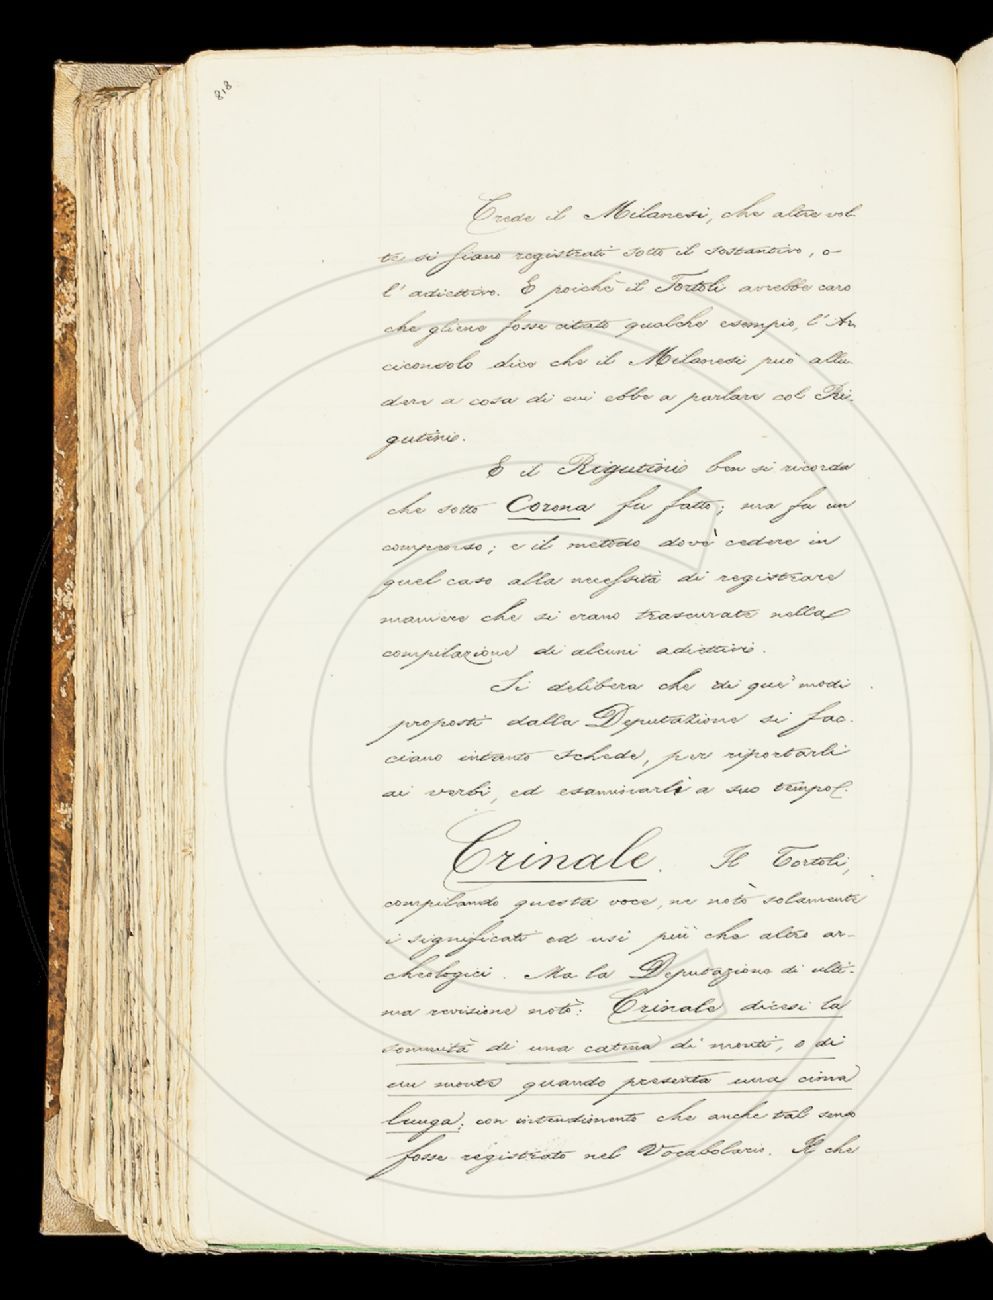 818
Crede il Milanesi, che altre vol
te si siano registrati sotto il sostantivo, o
l'adiettivo. E poichè il Tortoli avrebbe caro
che gliene fosse citato qualche esempio, l'Ar
ciconsolo dice che il Milanesi può allu
dere a cosa di cui ebbe a parlare col Ri.
gutini.
E il Rigutini ben si ricorda
che sotto Corona fu fatto; ma fu un
compenso; e il metodo dovè cedere in
quel caso alla necessità di registrare
maniere che si erano trascurate nella
compilazione di alcuni adiettivi.
Si delibera che di que' modi
proposti dalla Deputazione si fac.
ciano intanto schede, per riportarli
ai verbi, ed esaminarli a suo tempo.
Crinale. Il Tortoli,
compilando questa voce, ne notò solamente
i significati ed usi più che altro ar-
cheologici. Ma la Deputazione di ulti-
ma revisione notò: Crinale dicesi la
sommità di una catena di monti, o di
un monte quando presenta una cima
lunga; con intendimento che anche tal senso
fosse registrato nel Vocabolario. Il che